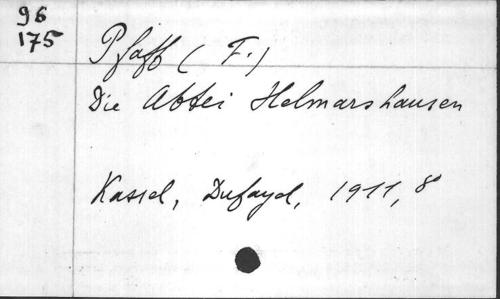 96
175
Pfaff (F.)
Die Abtei Helmarshausen
Kassel, Dufayel, 1911, 8°